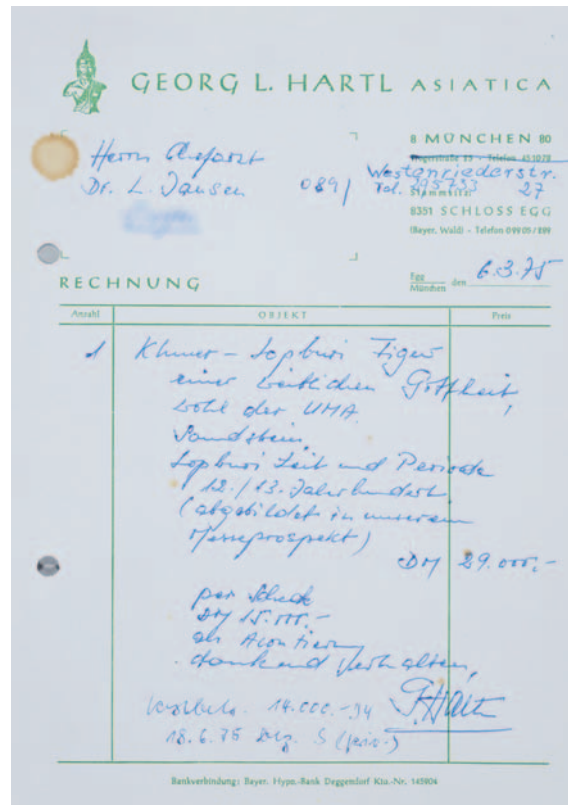 GEORG L. HARTL ASIATICA
8 MÜNCHEN 80
Herrn Chefarzt
Dr. L. Jansen
089/
Westenriederstr.
27
Tel. 295733
Stammsitz:
8351 SCHLOSS EGG
(Bayer. Wald) - Telefon 09909/899
RECHNUNG
Egg
München den 6.3.75
Anzahl OBJEKT Preis
1 Khmer-Lopburi Figur
einer weiblichen Gottheit,
wohl der UMA.
Sandstein,
Lopburi Zeit und Periode
12./13. Jahrhundert
(abgebildet in unserem
Messeprospekt)
DM 29.000,-
per Scheck
DM 15.000.-
als Acontierung
dankend erhalten,
G. Hartl
14.000.-
18.6.75
Bankverbindung: Bayer. Hypo.-Bank Deggendorf Kto.-Nr. 145904